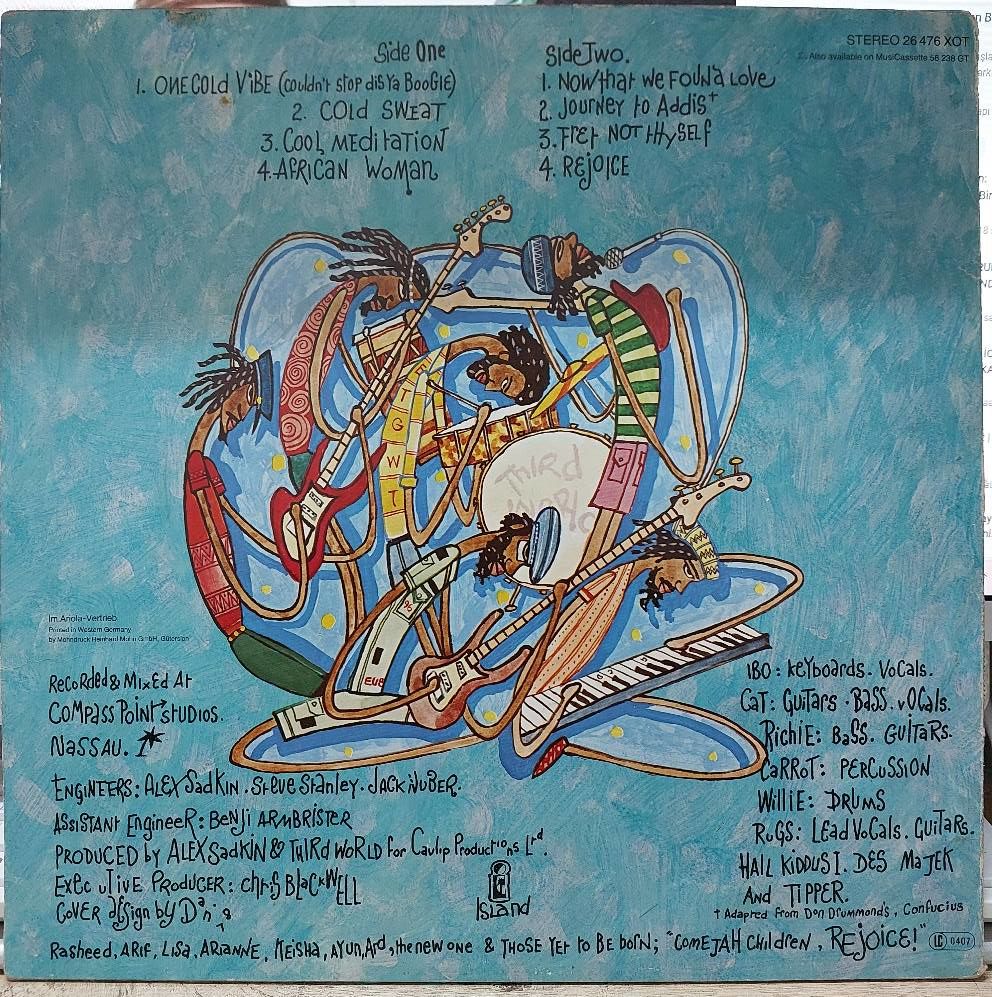 Side One
1. ONE COLD VIBE (Couldn't stop dis Ya BOOGIE)
2. COLD SWEAT
3. COOL MEDITATION
4. AFRICAN WOMAN
Side Two.
1. NOW that WE FOUND LOVE
2. Journey to Addis†
3. FRET NOT tHYSELF
4. REJOICE
STEREO 26 476 XOT
Also available on MusiCassette 56 238 GT
G
W
T
THIRD
WORLD
96
EUB
Im Ariola-Vertrieb
Printed in Western Germany
by Mohndruck Reinhard Mohn GmbH, Gütersloh
Recorded & MIXED At
COMPASS POINT STUDIOS.
NASSAU.
IBO: KEYboards. VOCALS.
CAT: GUITARS . BASS. VOCALS.
RICHIE: BASS. GUITARS.
CARROT: PERCUSSION
WILLIE: DRUMS
RUGS: LEAD VOCALS. GUITARS.
HAIL KIDDUS I. DES MAJEK
AND TIPPER.
† Adapted from Don Drummond's, Confucius
ENGINEERS: ALEX SadKIN. Steve Stanley. JACK NUBER.
ASSISTANT ENGINEER: BENJI ARMBRISTER
PRODUCED by ALEX SadKIN & THIRD WORLD for Cavlip Productions Ltd.
EXECUTIVE PRODUCER: CHRIS BLACKWELL
COVER design by
Island
Rasheed, ARIF, LISA, ARIANNE, KEISHA, AYUN, Ard, the new one & THOSE YET to BE born; "COME JAH Children, REJOICE!" LC 0407